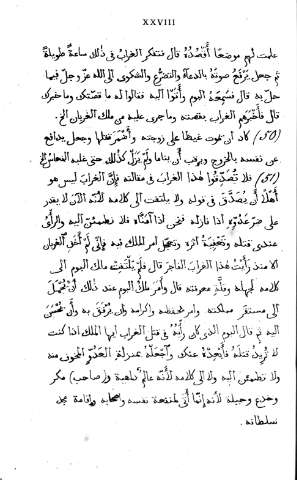 XXVIII
علمت لهم موضعا أَقْصُدُهُ قال فتفكر الغراب في ذلك ساعةً طويلةً
ثم جعل يرْفَعُ صوتهُ بالدعآء والتضرُّعِ والشكوى الى الله عزّ وجلّ فيما
حلّ به قال فسَمِعَهُ البوم وأَتَوْا اليه فقالوا له ما قصّتك وما خبرك
قال فأَخْبَرَهم الغراب بقصّته وما جرى عليه من ملك الغربان الخ.
(50) كاد أن يموت غيظا على زوجته وأَضْمَرَ قتلها وجعل يدافع
عن نفسه بالخروج ويرقب أن يناما ولم يَزَلْ كذلك حتى غلبه النعاس الخ
(51) فلا تُصَدِّقُوا لهذا الغراب في مقالته فإنّ الغراب ليس هو
أَهْلًا أَن يُصَدَّقَ في قوله ولا يلتفت الى كلامه لأَنّه الآن لا يقدر
على ضرّ عدوّه اذا نازله فنحن اذا أمنّاه فلا نطمئنّ اليه والرأي
عندي قتله وتَعْفِيَة أَثره وتعجيل امر الملك فيه فإنّي لم أَنْسَ الغربان
الا منذ رأيتُ هذا الغراب الفاجر قال فلم يَلْتَفِتْ ملك البوم الى
كلامه لجهله وقلّة معرفته قال وأَمَرَ ملك البوم عند ذلك أَن يُحْمَلَ
الى مستقر مملكته وامر بحفظه واكرامه وان يُرْفَقَ به وأَن يُحْسَنَ
اليه ثم قال البوم الذي كان رأيُهُ في قتل الغراب ايها الملك اذا كنت
لا تُرِيدُ قتلهُ فأَبْعِدْهُ عنك واجْعَلْهُ بمنزلة العدوّ المخوف منه
ولا تطمئنّ اليه ولا الى كلامه لأَنّه عالم داهية و(صاحب) مكر
وخدع وحيلة لأنه إنّما أَتى لمنفعة نفسه وأصحابه واقامة مجد
سلطانه.